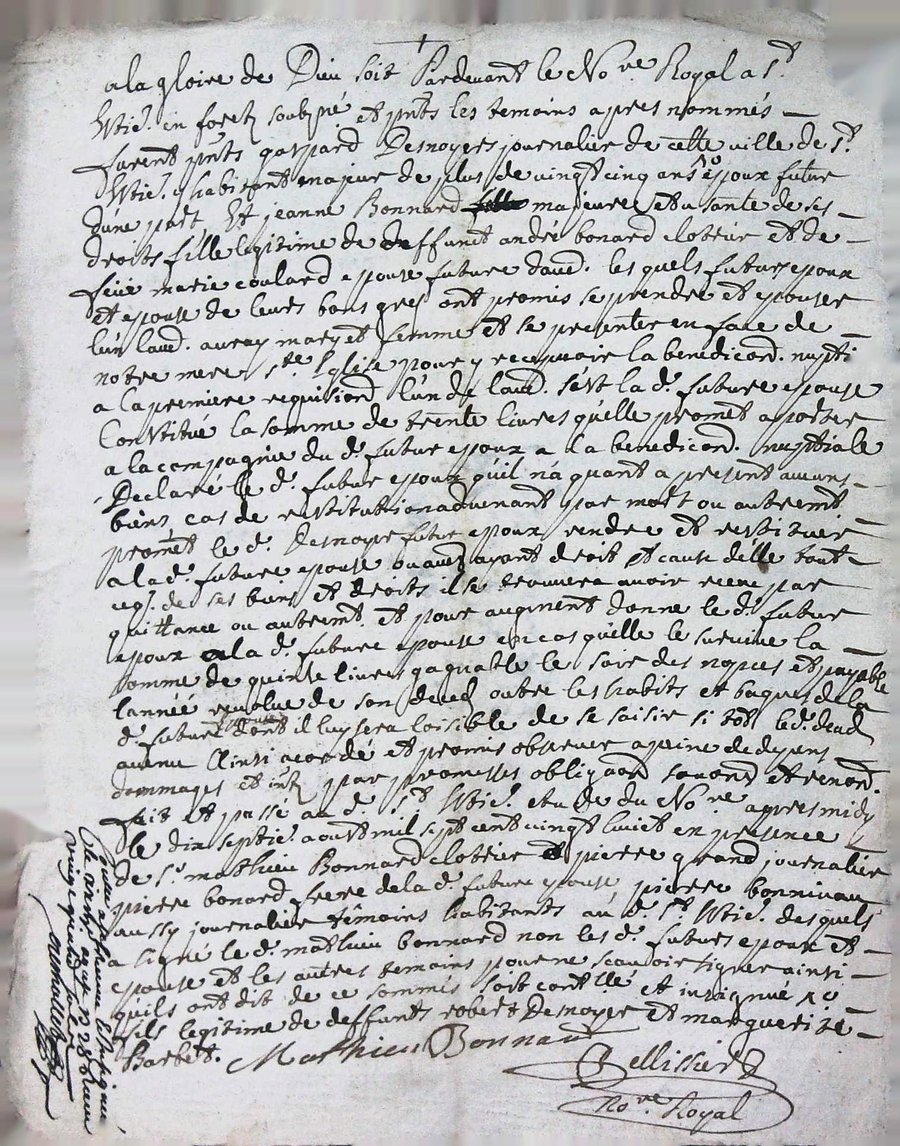 a la gloire de Dieu soit Pardevant le No.re Royal a s.t
Etie. en foretz soubz.né et p.nts les temoins apres nommés
furent p.nts gaspard Desnoyers journalier de cette ville de s.t
Etie. y habitant majeur de plus de vingt cinq ans epoux futur
d'une part Et jeanne Bonnard majeure et usante de ses
droits fille legitime de deffunct andré bonard clotrier et de
feüe marie coulard epouse future daud. les quels futurs epoux
et epouse de leurs bons grés ont promis se prendre et epouser
l'un laud. a vray mary et femme et se presenter en face de
notre mere s.te Eglise pour y recepvoir la benedic.on nupti
a la premiere requisi.on l'un de laud. s'est la d. future epouse
Constitué la somme de trente livres qu'elle promet aporter
a la compagnie du d. futur epoux a la benediction. nuptiale
Declaré le d. futur epoux qu'il n'a quant a present aucuns
biens cas de restitution advenant par mort ou autremt
promet le d. Desnoye futur epoux rendre et restituer
a la d. future epouse ou aux ayant droit et cause d'elle tout
ce q. de ses biens et droits il se trouvera avoir receu par
quittance ou autremt. et pour augment donne le d. futur
epoux a la d. future epouse en cas qu'elle le survive la
somme de quinse livres gagnable le soir des nopces et payable
l'année revolue de son deced outre les habits et bagues de la
d. future epouse dont il luy sera loisible de se saisir si tot le d. deced
avenu Ainsi acordé et promis observer a peine de depens
dommages et int. par promesses obliga.on soum.on et renon.
fait et passé au d. s.t Etie. etude du No.re apres midy
le dix septie. aoust mil sept cent vingt huict en presence
de s.r mathieu Bonnard clotrier et pierre grand journalier
pierre bonard frere de la d. future epouse pierre bonnivau
aussy journalier temoins habitants au d. s.t Etie. desquels
a signé le d. mathieu bonnard non les d. futurs epoux et
epouse et les autres temoins pour ne scavoir signer ainsi
qu'ils ont dit de ce sommés soit contllé et insignué
fils legitime de deffunts robert Desnoyer et marguerite
Barbet. Mathieu Bonnard
Pellissier
No.re Royal